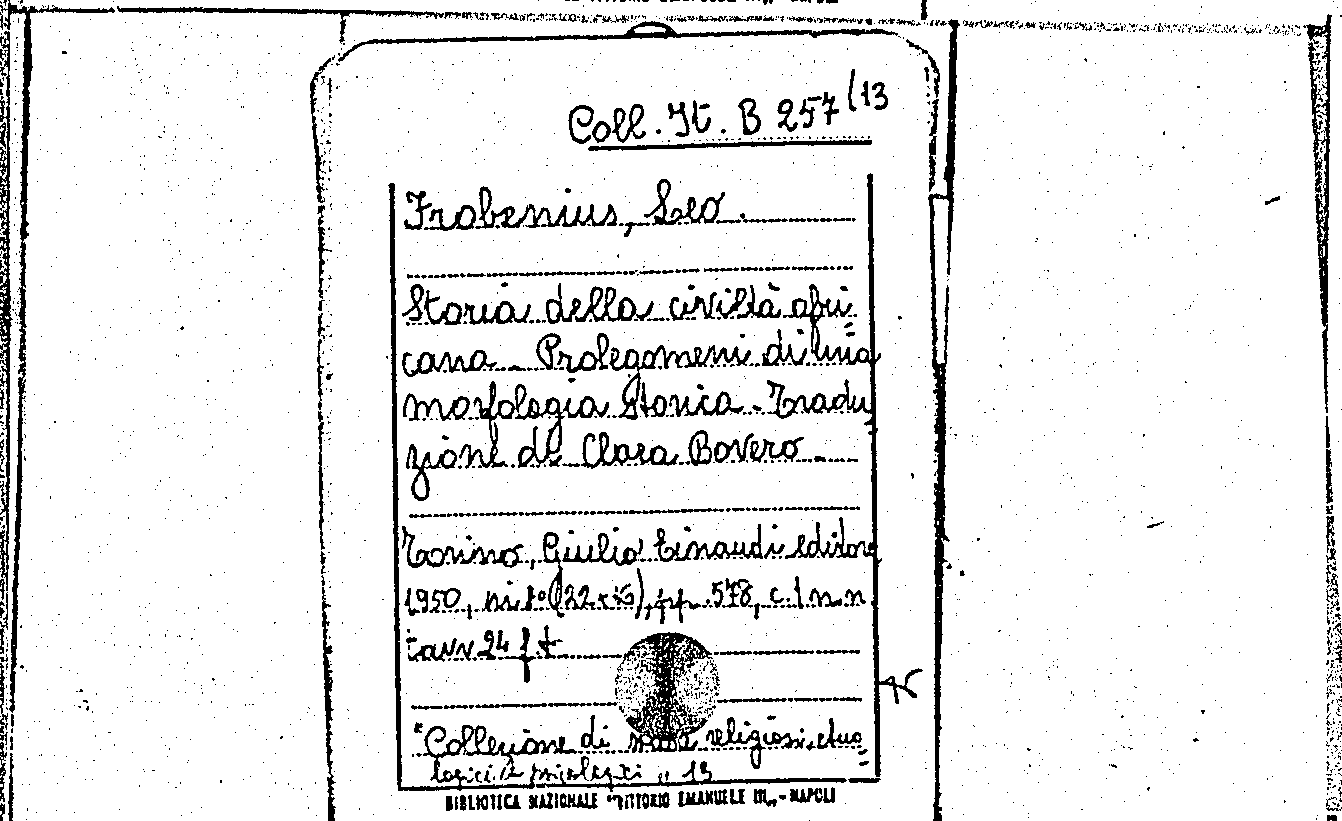 Coll. It. B 257/13
Frobenius, Leo.
Storia della civiltà afri=
cana - Prolegomeni di una
morfologia storica - Tradu=
zione di Clara Bovero -
Torino, Giulio Einaudi editore
1950, in 8° (22x16), pp. 578, c. 1 n. n
tavv 24 f t
"Collezione di studi religiosi, etno=
logici e psicologici" 13
BIBLIOTECA NAZIONALE "VITTORIO EMANUELE III" - NAPOLI